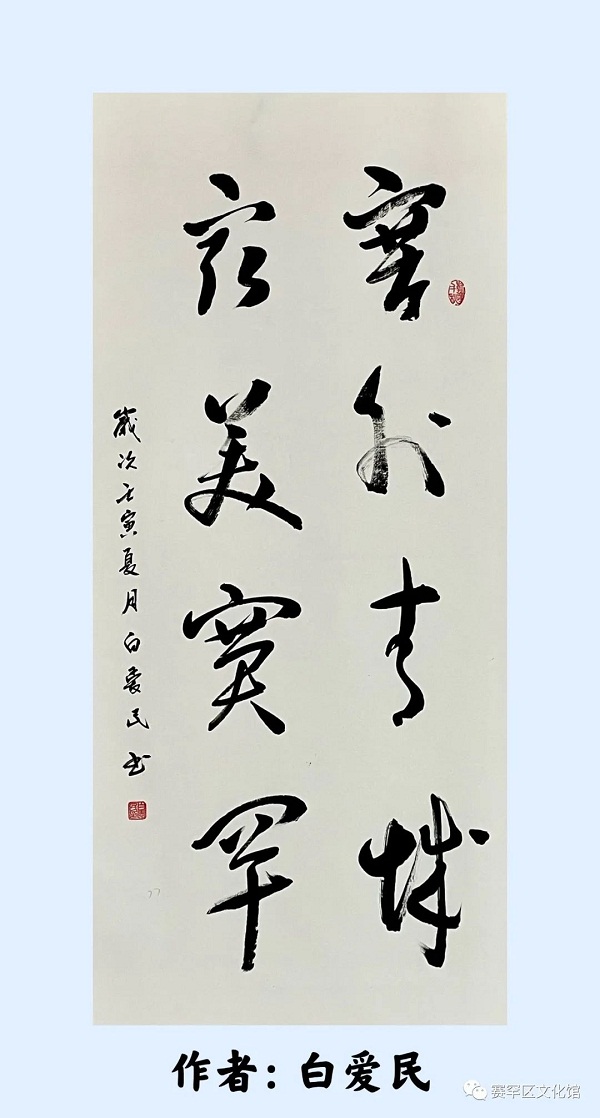 塞外青城
最美赛罕
岁次壬寅夏月白爱民书
作者：白爱民
赛罕区文化馆